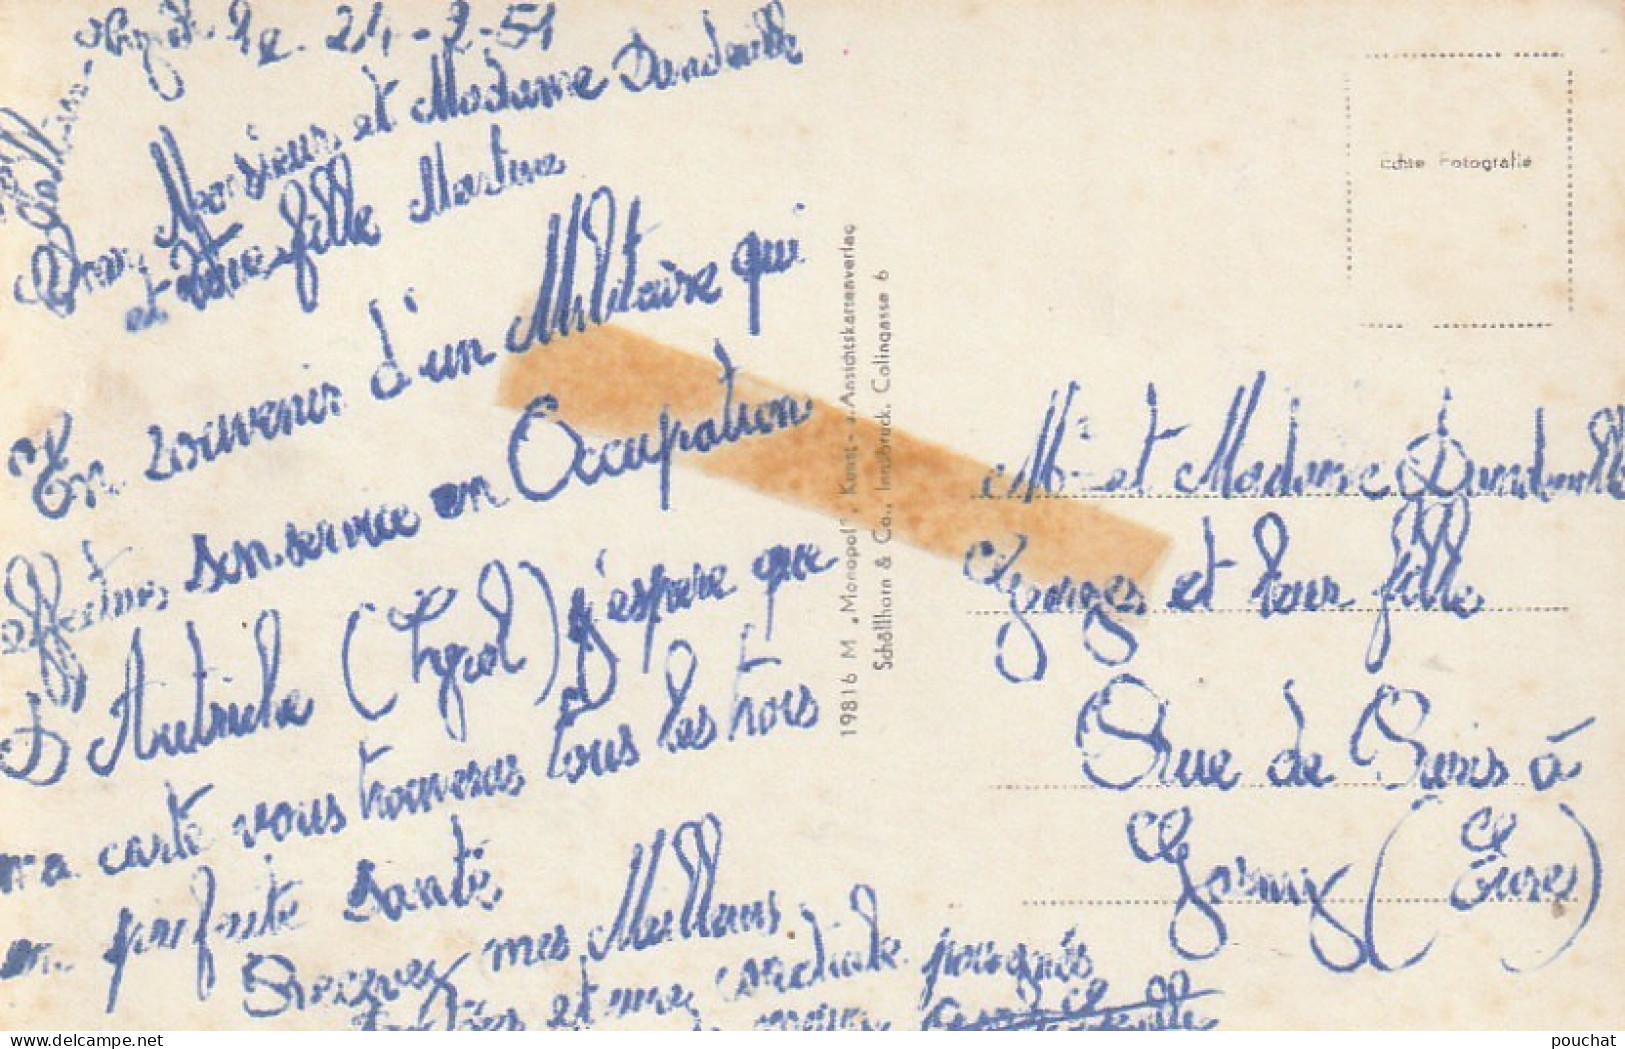 le 24-2-51
Monsieur et Madame Dandeville
et votre fille Martine
En souvenir d'un Militaire qui
effectues son service en Occupation
D'Autriche (Tyrol) J'espère que
ma carte vous trouveras tous les trois
en parfaite santé
Recevez mes Meilleurs
et une cordiale poignés
19816 M „Monopol", Kunst- u. Ansichtskartenverlag
Schöllhorn & Co., Innsbruck, Colingasse 6
Echte Fotografie
Mr et Madame Dandeville
Georges et leur fille
Rue de Paris à
Gasny (Eure)
pouchat